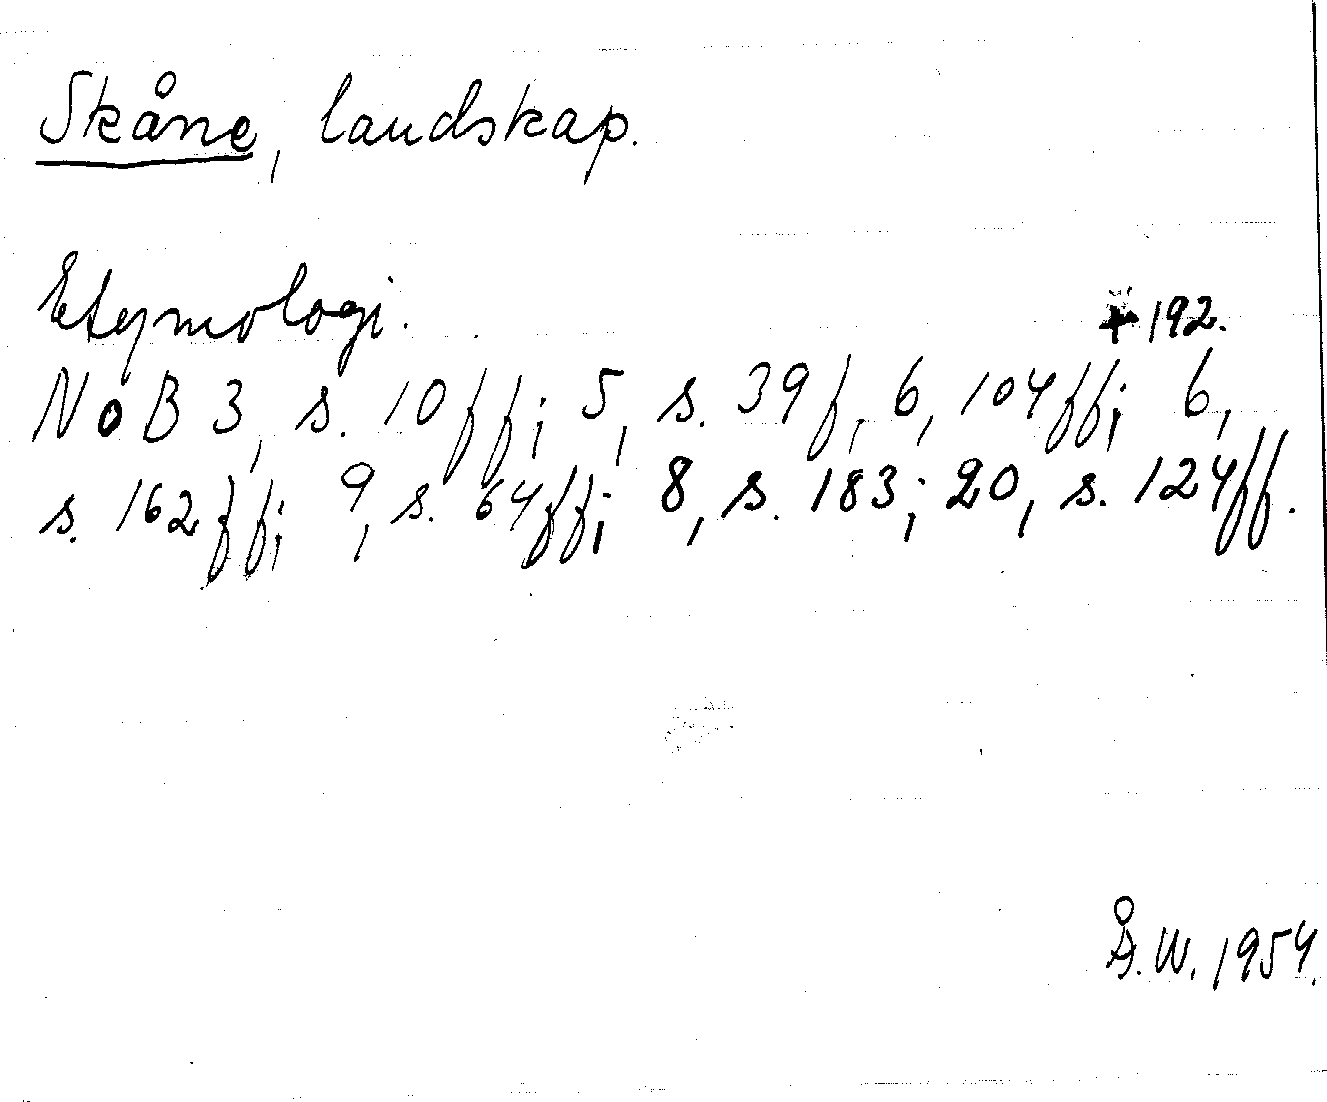 Skåne, landskap.
Etymologi.
+ 192.
NoB 3, s. 10ff; 5, s. 39f, 6, 104ff; 6,
s. 162ff; 9, s. 64ff; 8, s. 183; 20, s. 124ff.
Å.W. 1954.